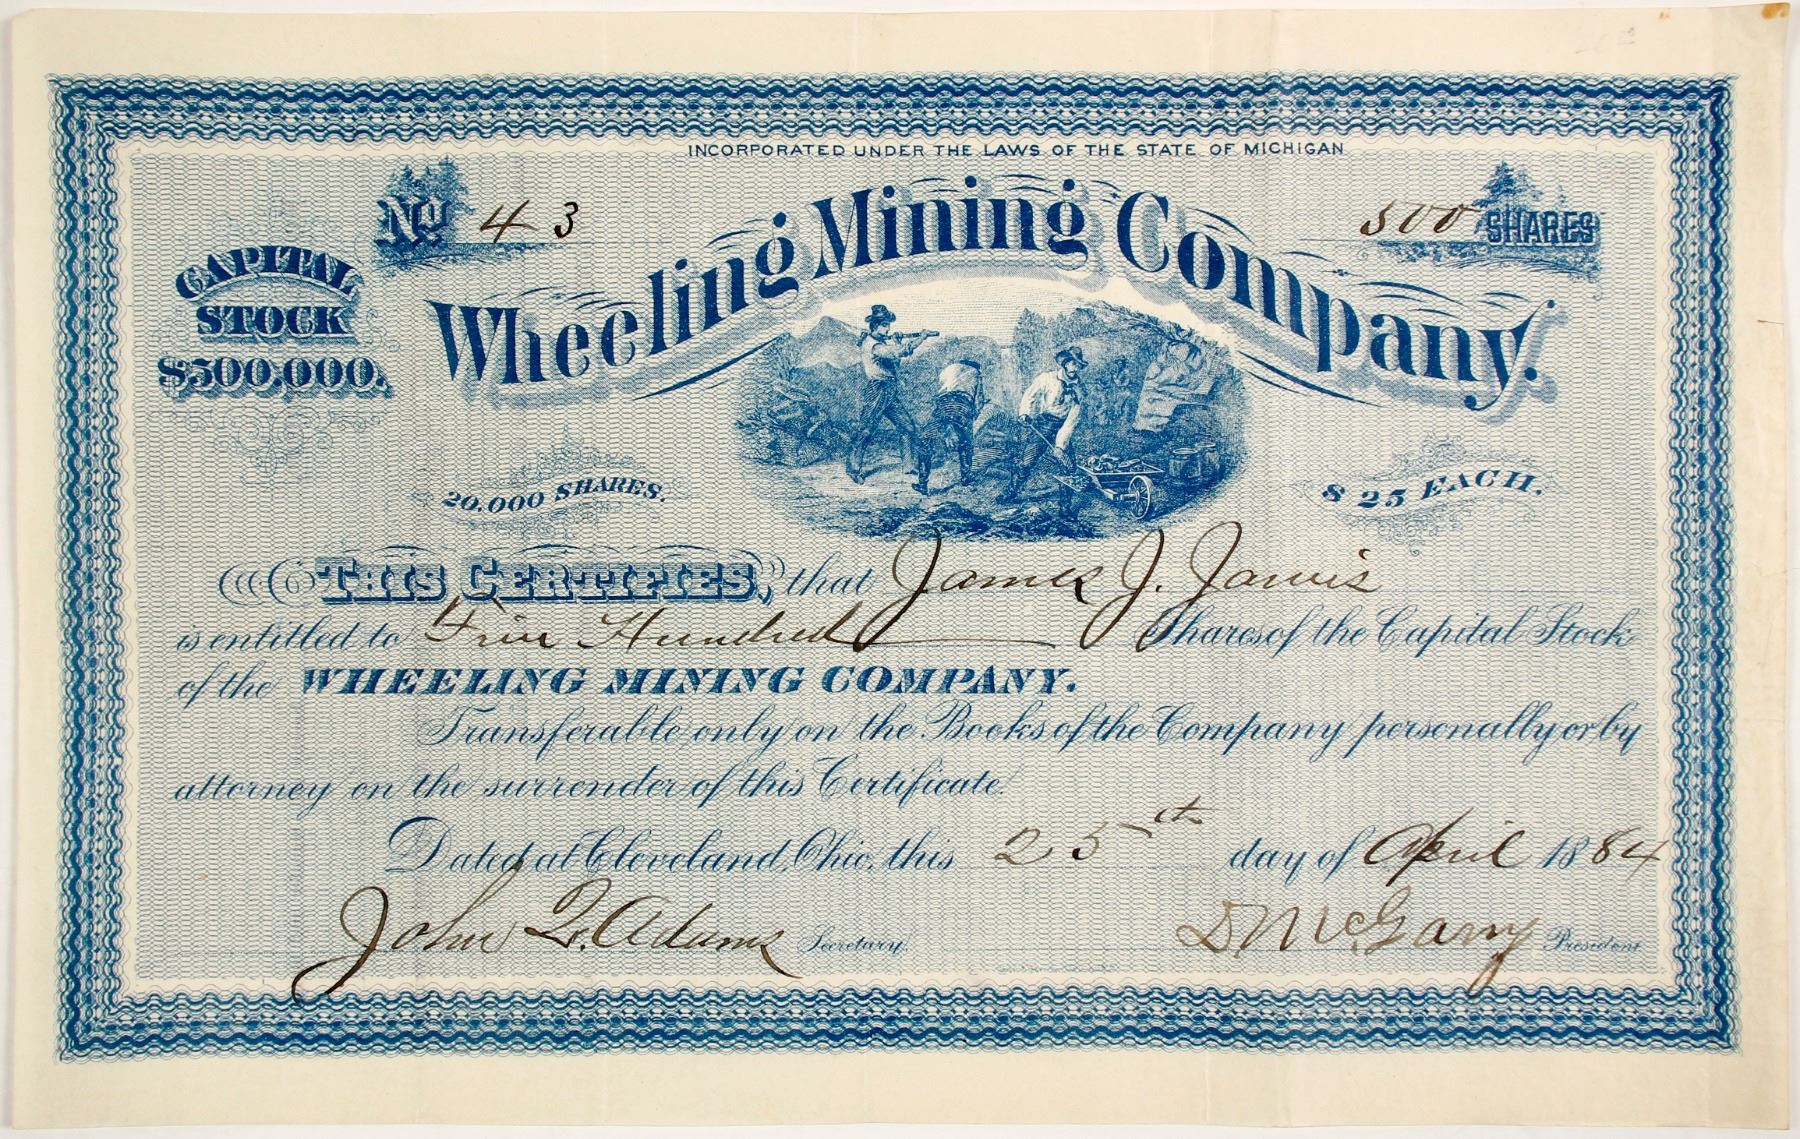 INCORPORATED UNDER THE LAWS OF THE STATE OF MICHIGAN
No 43
500 SHARES
Wheeling Mining Company.
CAPITAL
STOCK
$500,000.
20,000 SHARES.
$25 EACH.
THIS CERTIFIES, that James J. Jarvis
is entitled to Five Hundred Shares of the Capital Stock
of the WHEELING MINING COMPANY.
Transferable only on the Books of the Company personally or by
attorney on the surrender of this Certificate.
Dated at Cleveland, Ohio, this 25th day of April 1884
John Q. Adams Secretary.
D. McGarry President